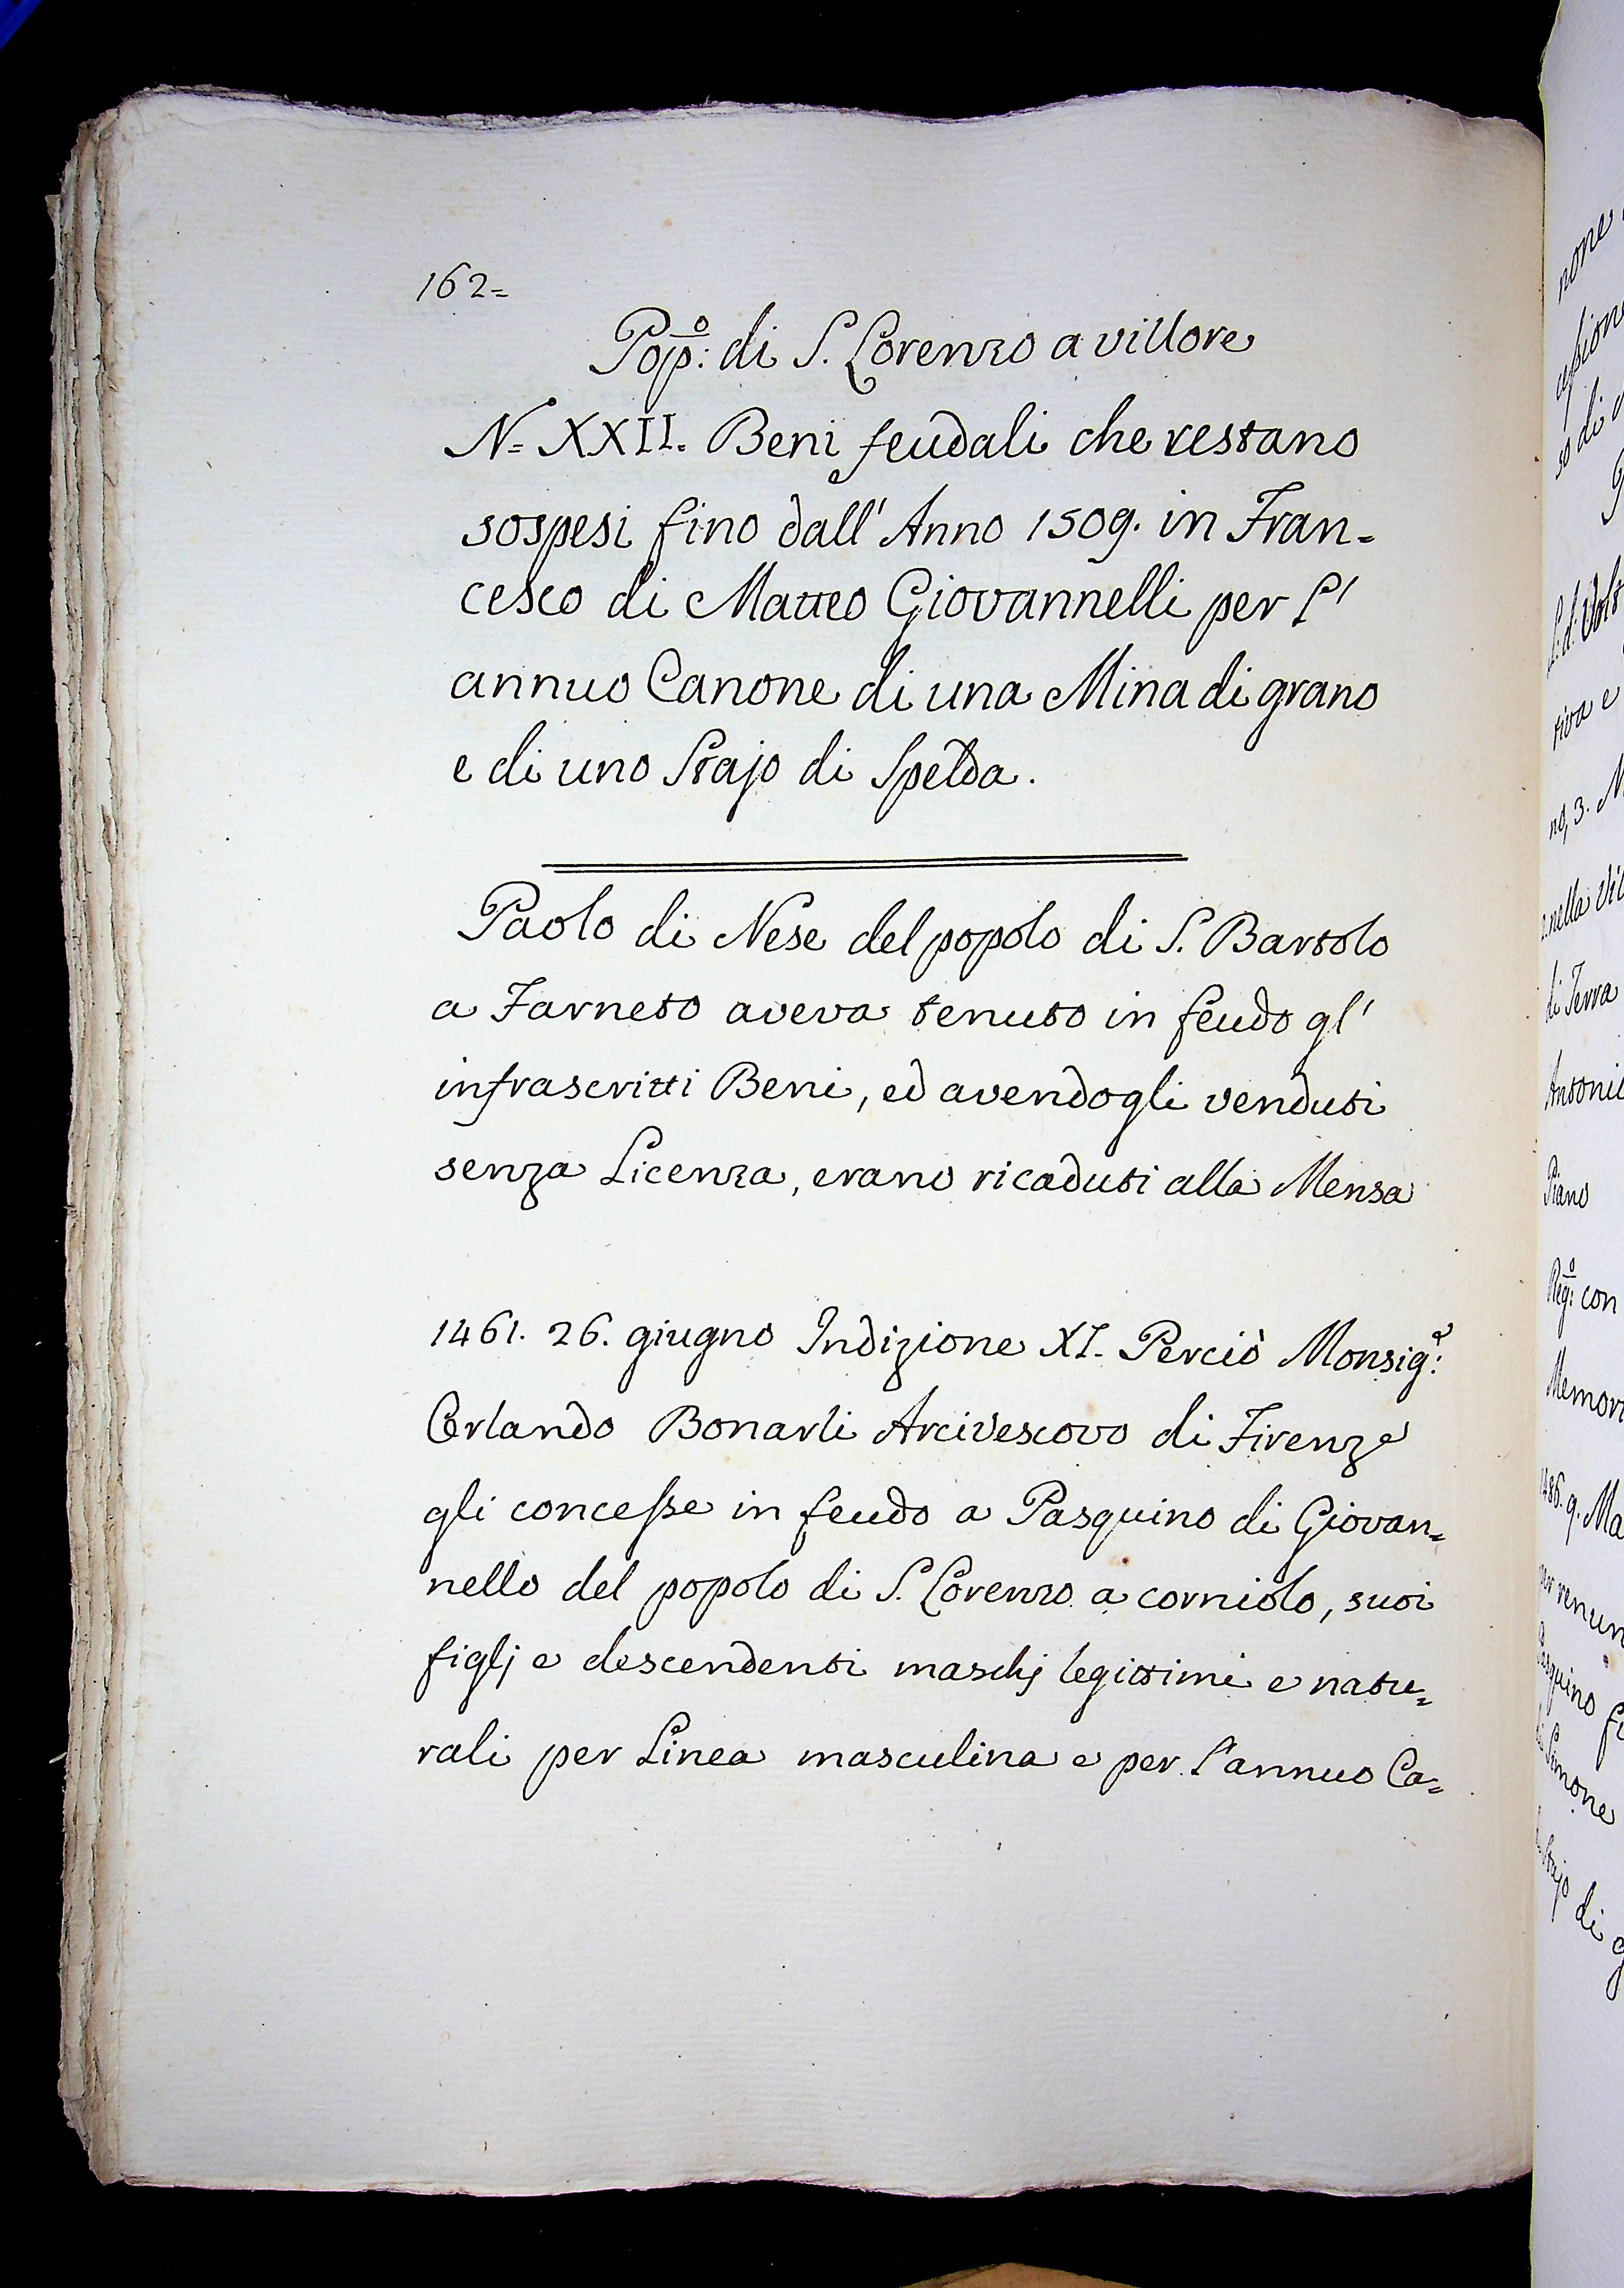 162=
Pop:º di S. Lorenzo a villore
N= XXII. Beni feudali che restano
sospesi fino dall' Anno 1509. in Fran=
cesco di Matteo Giovannelli per l'
annuo Canone di una Mina di grano
e di uno Stajo di Spelda.
Paolo di Nese del popolo di S. Bartolo
a Farneto aveva tenuto in feudo gl'
infrascritti Beni, ed avendogli venduti
senza Licenza, erano ricaduti alla Mensa
1461. 26. giugno Indizione XI. Perciò Monsig:ʳ
Orlando Bonarli Arcivescovo di Firenze
gli concesse in feudo a Pasquino di Giovan=
nello del popolo di S. Lorenzo a corniolo, suoi
figlj e descendenti maschj legittimi e natu=
rali per Linea masculina e per l'annuo Ca=
none
so di
di Terra
Piano
Reg:º con
1486. 9. Ma
Simone
Stajo di g